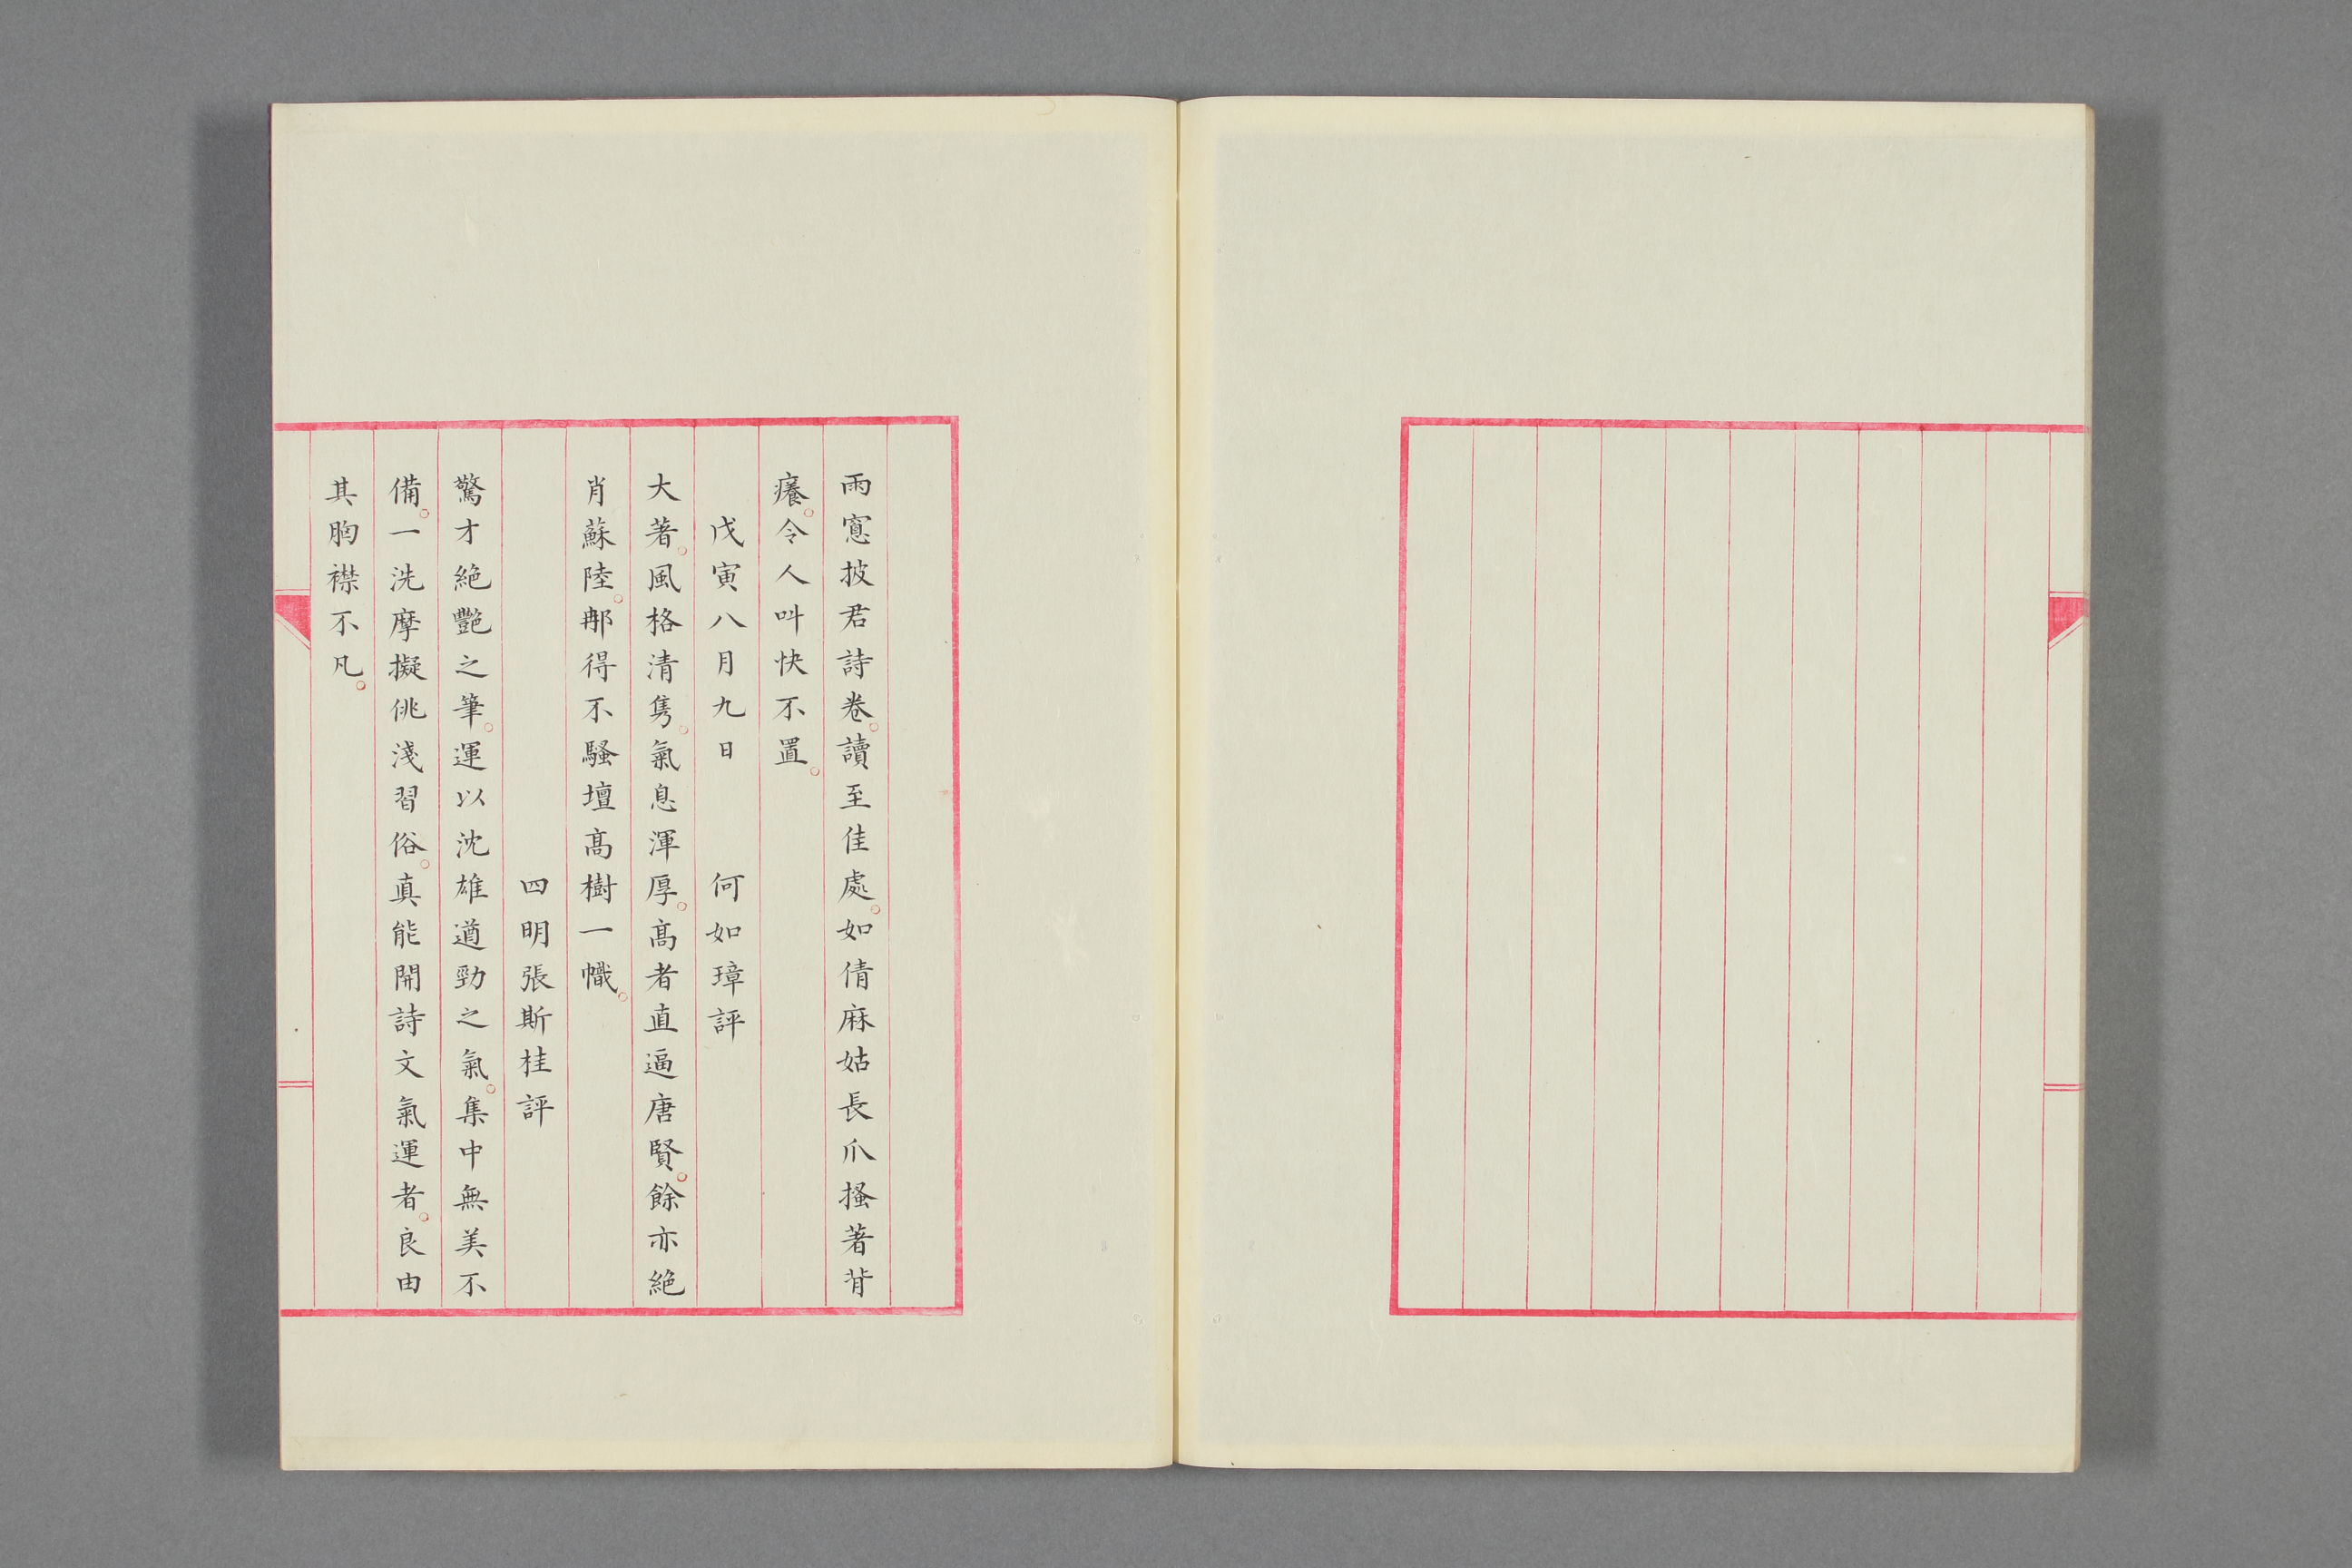 雨窻披君詩卷。讀至佳處。如倩麻姑長爪搔著背
癢。令人叫快不置。
戊寅八月九日　何如璋評
大著。風格清雋。氣息渾厚。髙者直逼唐賢。餘亦絕
肖蘇陸。那得不騷壇髙樹一幟。
四明張斯桂評
驚才絕艷之筆。運以沈雄遒勁之氣。集中無美不
備。一洗摩擬佻淺習俗。真能開詩文氣運者。良由
其胸襟不凡。